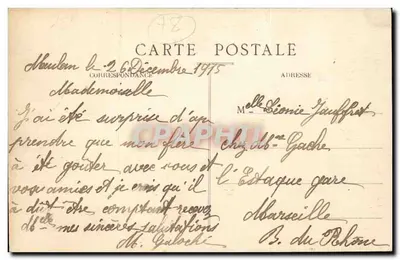 AZ
CARTE POSTALE
Meulan le 26 Décembre 1915
CORRESPONDANCE
ADRESSE
Mademoiselle
Melle Léonie Jauffret
J'ai été surprise d'ap
prendre que mon frère
chez Mme Gache
à été goûter avec vous et
vos amies et je crois qu'il
l'Estaque gare
à dût être comptant recevez
Marseille
Melle mes sincères salutations
B. du Rhône
M. Galochi
CPAPHIL